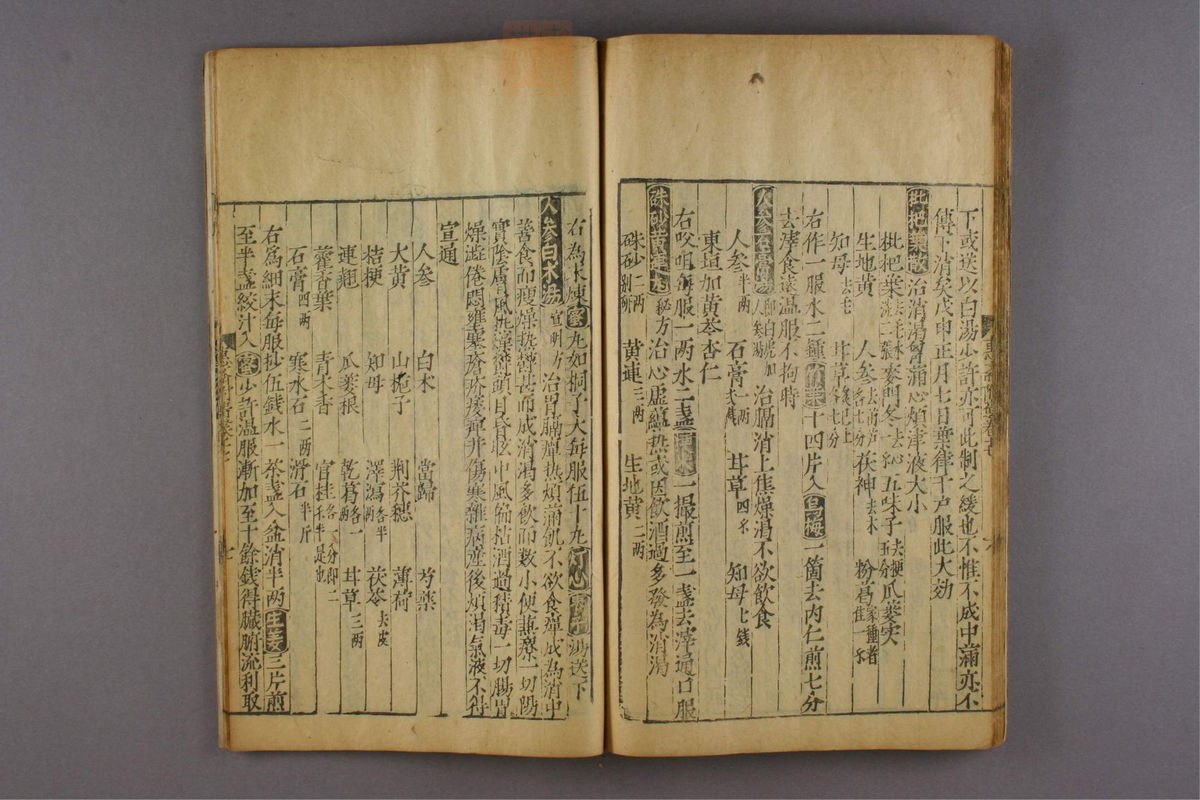 下或送以白湯少許亦可此制之緩也不惟不成中滿亦不
傳下消矣戊申正月七日葉律千戶服此大効
枇杷葉散 治消渴胃滿心煩津液大小
枇杷葉 麥門冬 五味子 瓜蔞實
生地黃 人參 茯神 粉葛
知母 甘草
右作一服水二鍾 竹葉 十四片入 烏梅 一箇去内仁煎七分
去滓食遠温服不拘時
人參石膏湯 即白虎加人參湯 治膈消上焦燥渴不欲飲食
人參半兩 石膏一兩 甘草四 知母七錢
東垣加黃芩杏仁
右㕮咀每服一兩水二盞 一撮煎至一盞去滓通口服
硃砂黃連丸 秘方 治心虛蘊热或因飲酒過多發為消渴
硃砂一兩別研 黃連三兩 生地黃二兩
右為末煉 蜜 丸如桐子大每服伍十丸 灯心 棗子 湯送下
人參白术湯 宣明方 治胃膈癉热煩滿飢不欲食癉成為消中
善食而瘦燥热鬱甚而成消渴多飲而数小便兼療一切陽
實陰虛風热燥鬱頭目昏眩中風偏枯酒過積毒一切腸胃
燥澁倦悶壅塞瘡疥痿痺并傷寒雜病產後煩渴氣液不得
宣通
人參 白术 當歸 芍藥
大黃 山梔子 荆芥穗 薄荷
桔梗 知母 澤瀉各半兩 茯苓去皮
連翹 瓜蔞根 乾葛各一兩 甘草三兩
藿香葉 青木香 官桂各一分即二錢半是也
石膏四兩 寒水石二兩 滑石半斤
右爲細末每服抄伍錢水一茶盞入盆消半兩 生姜 三片煎
至半盞絞汁入 蜜 少許温服漸加至十餘錢得臟腑流利取